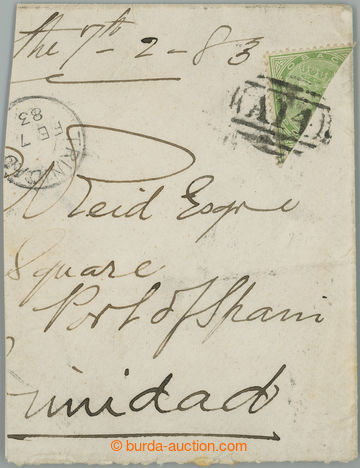 the 7th - 2 - 83
A14
TRINIDAD
FE 7
83
Reid Esqre
Square
Port of Spain
Trinidad
© burda-auction.com